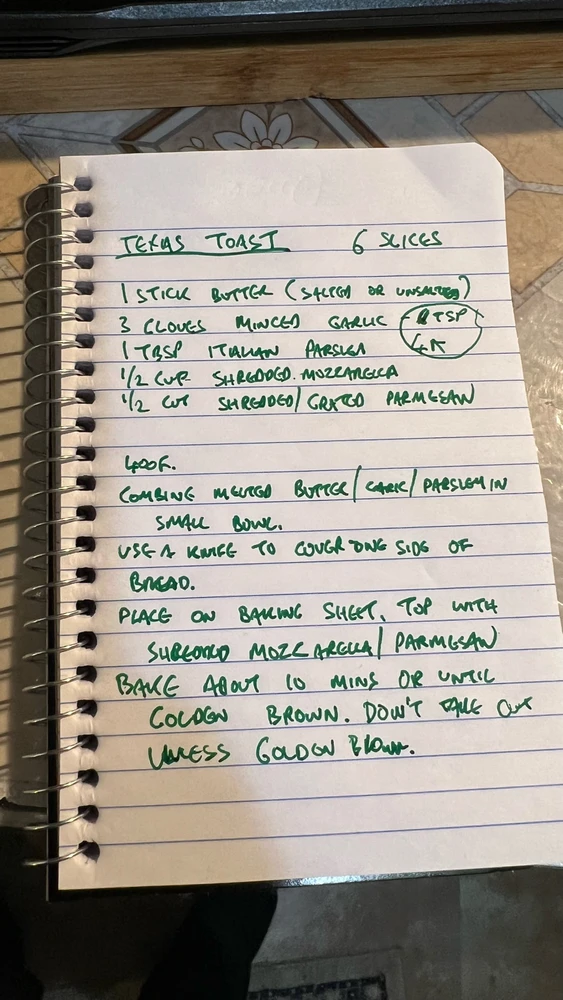 TEXAS TOAST 6 SLICES
1 STICK BUTTER (SALTED OR UNSALTED)
3 CLOVES MINCED GARLIC TSP
1 TBSP ITALIAN PARSLEY
1/2 CUP SHREDDED MOZZARELLA
1/2 CUP SHREDDED/GRATED PARMESAN
400F.
COMBINE MELTED BUTTER/GARLIC/PARSLEY IN
SMALL BOWL.
USE A KNIFE TO COVER ONE SIDE OF
BREAD.
PLACE ON BAKING SHEET. TOP WITH
SHREDDED MOZZARELLA/PARMESAN
BAKE ABOUT 10 MINS OR UNTIL
GOLDEN BROWN. DON'T TAKE OUT
UNLESS GOLDEN BROWN.